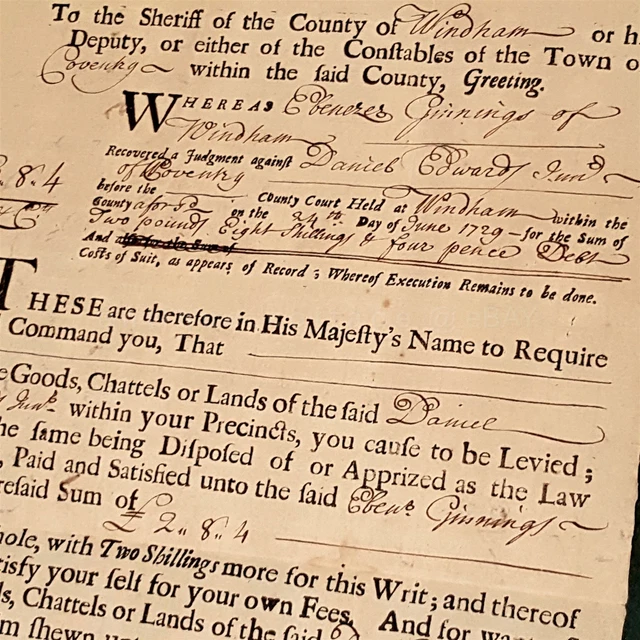 To the Sheriff of the County of Windham or h
Deputy, or either of the Conſtables of the Town o
Coventry within the ſaid County, Greeting.
WHEREAS Ebenezer Ginnings of
Windham
Recovered a Judgment againſt Daniel Edwards Junr.
of Coventry
before the County Court Held at Windham within the
County aforsd. on the 24th. Day of June 1729 for the Sum of
Two pounds Eight Shillings & four pence Debt
And
Coſts of Suit, as appears of Record; Whereof Execution Remains to be done.
. 8. 4
THESE are therefore in His Majeſty's Name to Require
Command you, That
e Goods, Chattels or Lands of the ſaid Daniel
Junr. within your Precincts, you cauſe to be Levied;
he ſame being Diſpoſed of or Apprized as the Law
, Paid and Satisfied unto the ſaid Ebenr. Ginnings
reſaid Sum of
£ 2. 8. 4
hole, with Two Shillings more for this Writ; and thereof
tisfy your ſelf for your own Fees, And for wan
ds, Chattels or Lands of the ſaid
m ſhewn unt